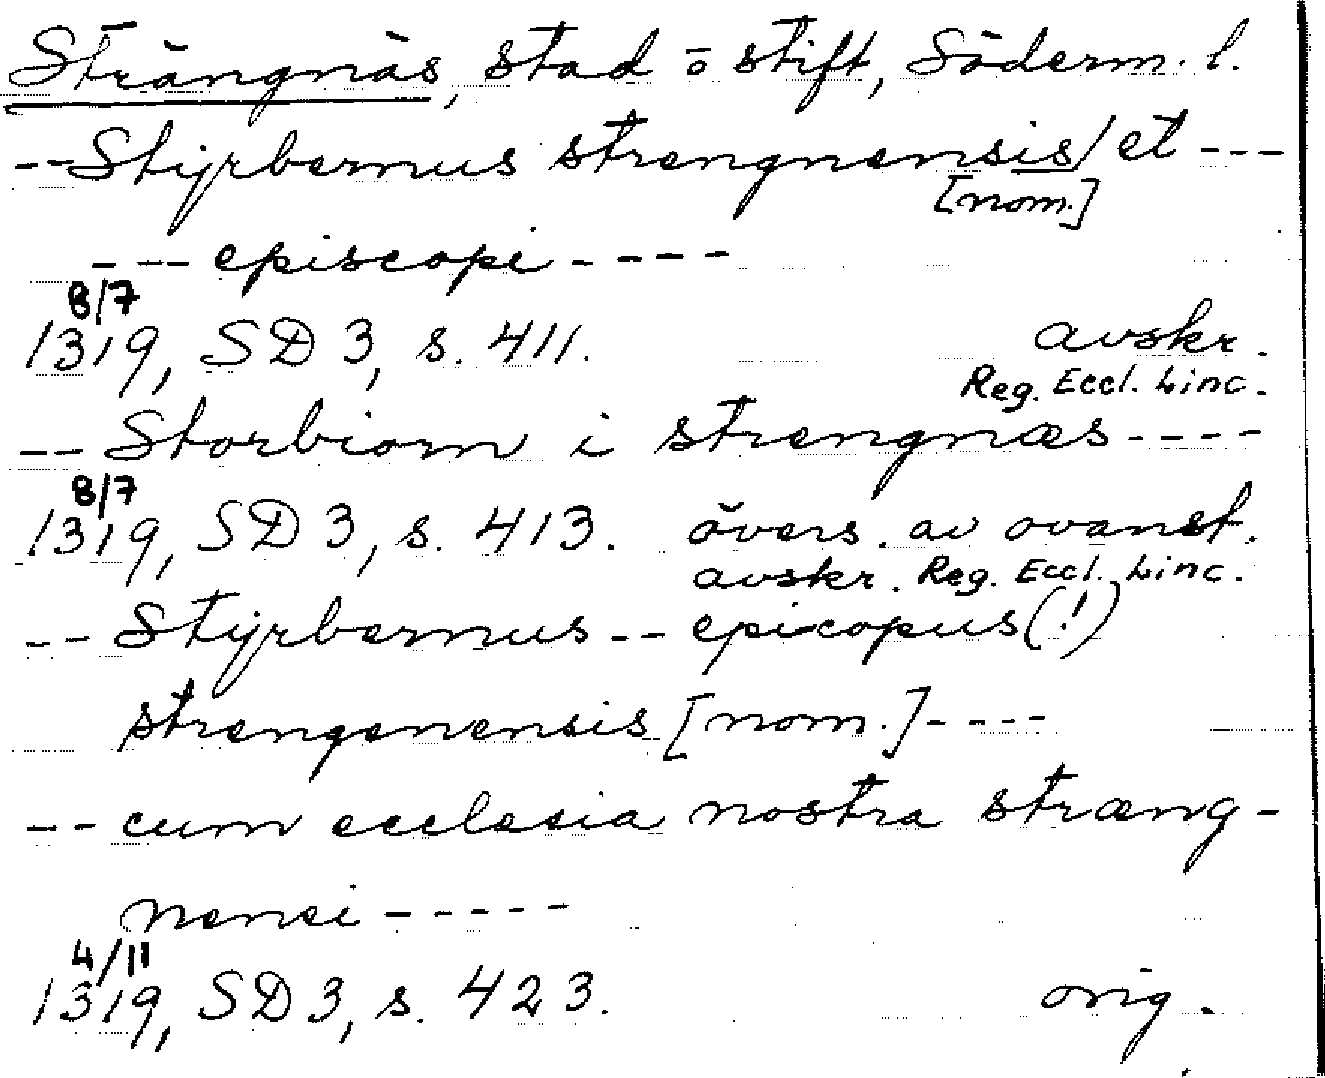 Strängnäs, stad o stift, Söderm. l.
--Styrbernus strengnensis/et ---
[nom.]
--- episcopi ----
8/7
1319, SD 3, s. 411. avskr.
Reg. Eccl. Linc.
-- Storbiorn i strengnæs ----
8/7
1319, SD 3, s. 413. övers. av ovanst.
avskr. Reg. Eccl. Linc.
-- Styrbernus -- epicopus (!)
strengenensis [nom.] ----
-- cum ecclesia nostra stræng-
nensi -----
4/11
1319, SD 3, s. 423. orig.